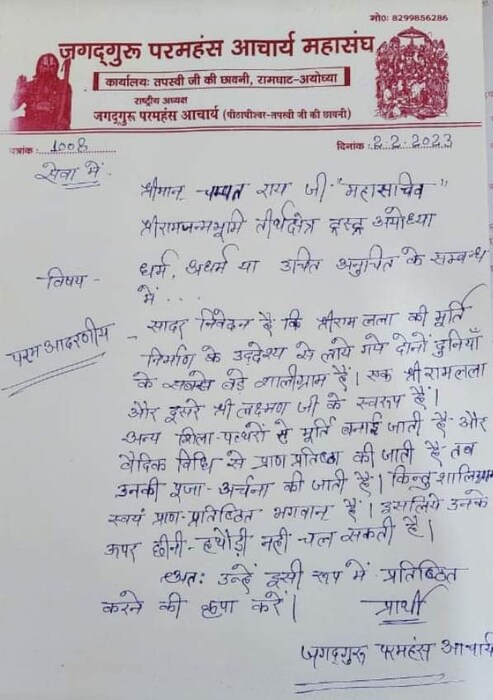 मो०: 8299856286
जगद्गुरु परमहंस आचार्य महासंघ
कार्यालय: तपस्वी जी की छावनी, रामघाट-अयोध्या
राष्ट्रीय अध्यक्ष
जगद्गुरु परमहंस आचार्य (पीठाधीश्वर-तपस्वी जी की छावनी)
पत्रांक : 1008 दिनांक : 2-2-2023
सेवा में.
श्रीमान - चम्पत राय जी "महासचिव"
श्रीरामजन्मभूमि तीर्थक्षेत्र ट्रस्ट अयोध्या
विषय - धर्म, अधर्म या उचित अनुचित के सम्बन्ध
में ...
परम आदरणीय - सादर निवेदन है कि श्रीराम लला की मूर्ति
निर्माण के उद्देश्य से लाये गये दोनों दुनियाँ
के सबसे बड़े शालीग्राम हैं। एक श्री रामलला
और दूसरे श्री लक्ष्मण जी के स्वरूप हैं।
अन्य शिला-पत्थरों से मूर्ति बनाई जाती है और
वैदिक विधि से प्राण प्रतिष्ठा की जाती है तब
उनकी पूजा-अर्चना की जाती है। किन्तु शालिग्राम
स्वयं प्राण-प्रतिष्ठित भगवान हैं। इसलिये उनके
ऊपर छीनी-हथौड़ी नहीं चल सकती है।
अतः उन्हें इसी रूप में प्रतिष्ठित
करने की कृपा करें। प्रार्थी
जगद्गुरु परमहंस आचार्य